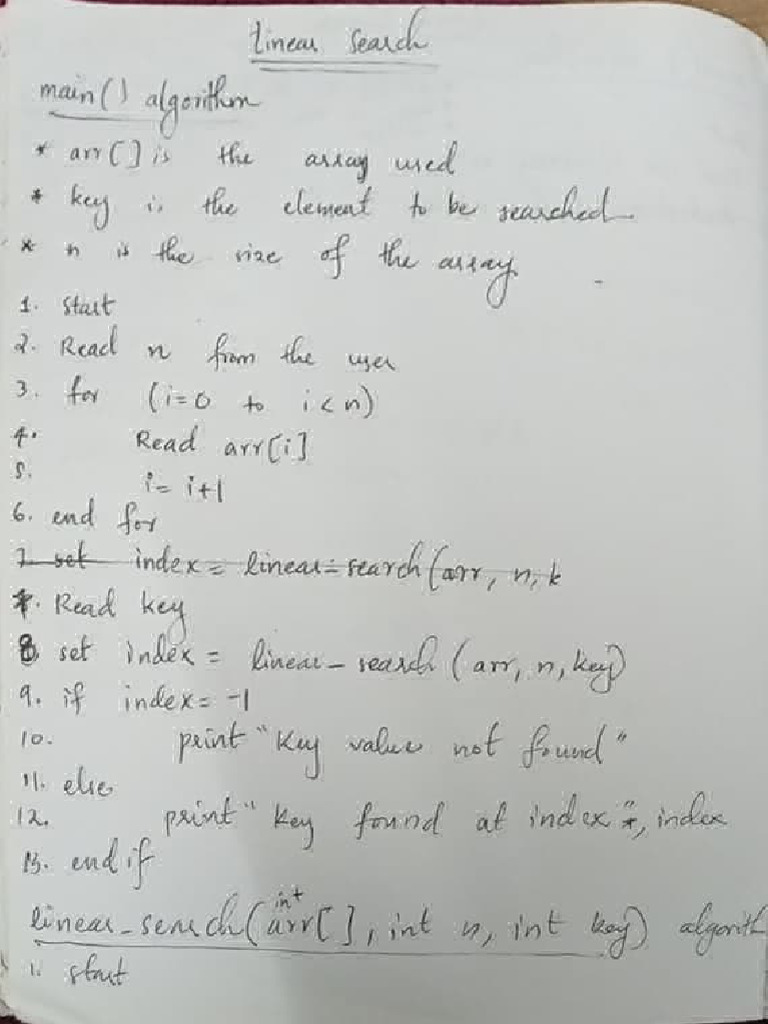 Linear Search
main() algorithm
* arr[] is the array used
* key is the element to be searched
* n is the size of the array
1. Start
2. Read n from the user
3. for (i=0 to i<n)
4. Read arr[i]
5. i= i+1
6. end for
7. set index = linear-search(arr, n, k
7. Read key
8. set index = linear-search (arr, n, key)
9. if index= -1
10. print "Key value not found"
11. else
12. print "Key found at index", index
13. end if
linear-search(int arr[], int n, int key) algorith
1. start